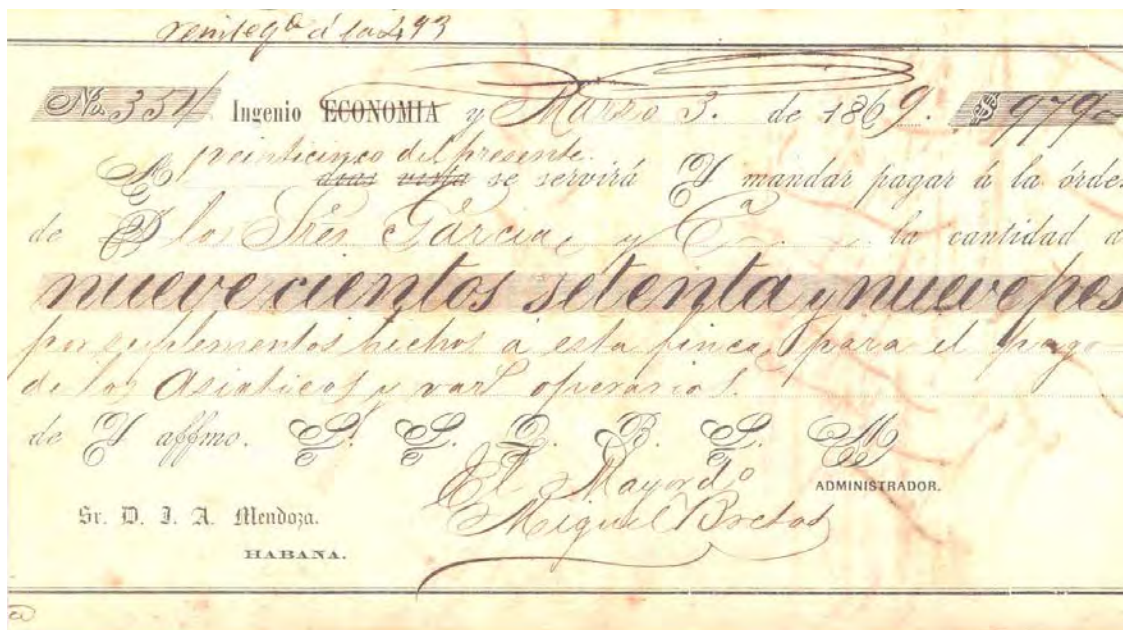 á la 493
No. 354 Ingenio ECONOMIA y Marzo 3. de 1869. $ 979
A veinticinco del presente.
dias vista se servirá V mandar pagar á la órde
de D los Sres García, y Cª la cantidad d
nueve cientos setenta y nueve pes
por suplementos hechos á esta finca, para el pago
de los Asiaticos y vars operarios.
de V affmo. S. S. Q. B. S. M
El Mayordo
ADMINISTRADOR.
Sr. D. J. A. Mendoza.
Miguel Bretos
HABANA.